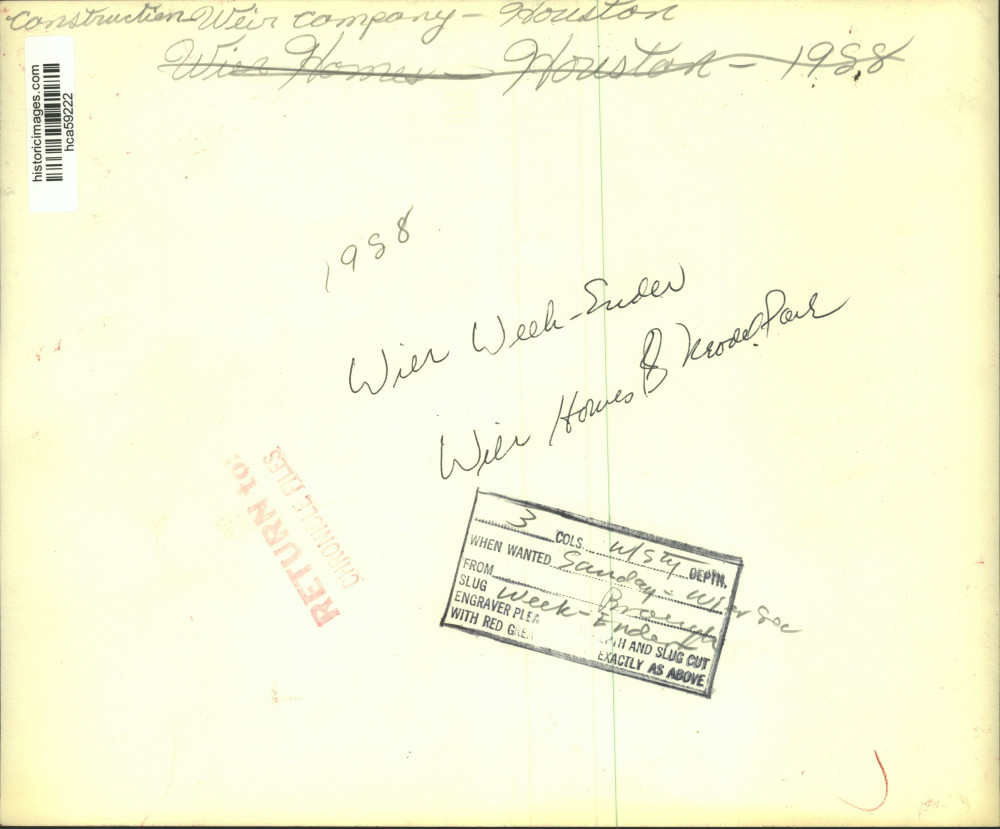 Construction Weir Company - Houston
Wier Homes - Houston - 1958
historicimages.com
hca59222
1958
Wier Week-Ender
Wier Homes & Model Park
RETURN to:
CHRONICLE FILES
3 COLS. w/Sty DEPTH.
WHEN WANTED Sunday - Wier Sec
FROM Brough
SLUG Week-Ender
ENGRAVER PLEA TH AND SLUG CUT
WITH RED GREA EXACTLY AS ABOVE